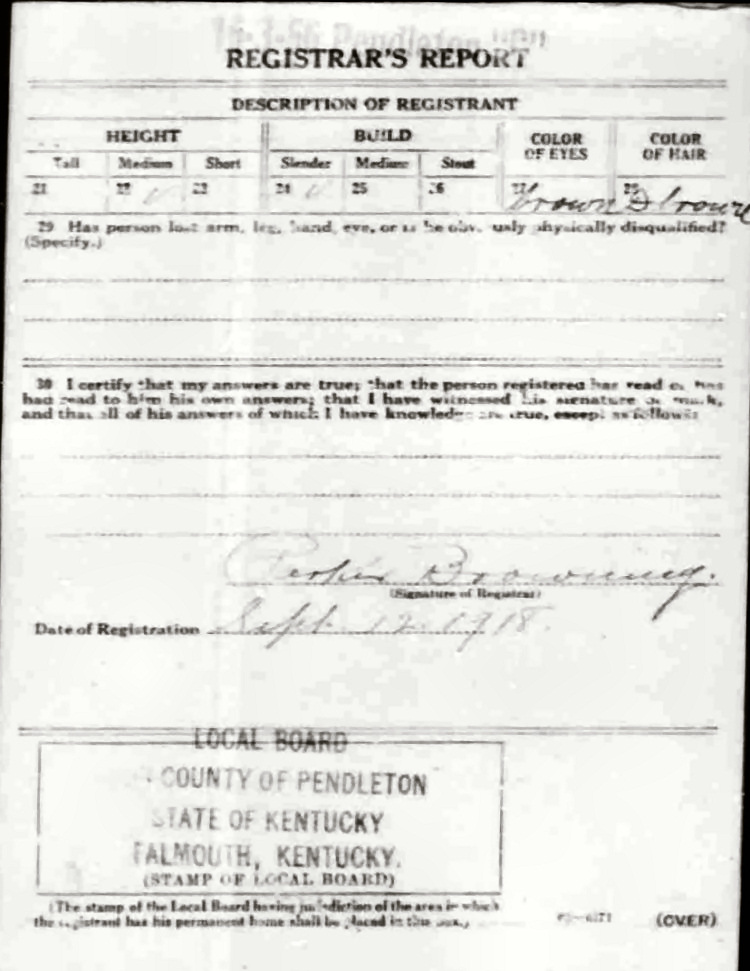 Pendleton "C"
REGISTRAR'S REPORT
DESCRIPTION OF REGISTRANT
HEIGHT BUILD COLOR OF EYES COLOR OF HAIR
Tall Medium Short Slender Medium Stout
21 22 ✓ 23 24 ✓ 25 26 27 brown 28 D brown
29 Has person lost arm, leg, hand, eye, or is he obviously physically disqualified?
(Specify.)
30 I certify that my answers are true; that the person registered has read or has
had read to him his own answers; that I have witnessed his signature or mark,
and that all of his answers of which I have knowledge are true, except as follows:
Browning.
(Signature of Registrar)
Date of Registration Sept. 12. 1918.
LOCAL BOARD
COUNTY OF PENDLETON
STATE OF KENTUCKY
FALMOUTH, KENTUCKY.
(STAMP OF LOCAL BOARD)
(The stamp of the Local Board having jurisdiction of the area in which
the registrant has his permanent home shall be placed in this box.)
(OVER)